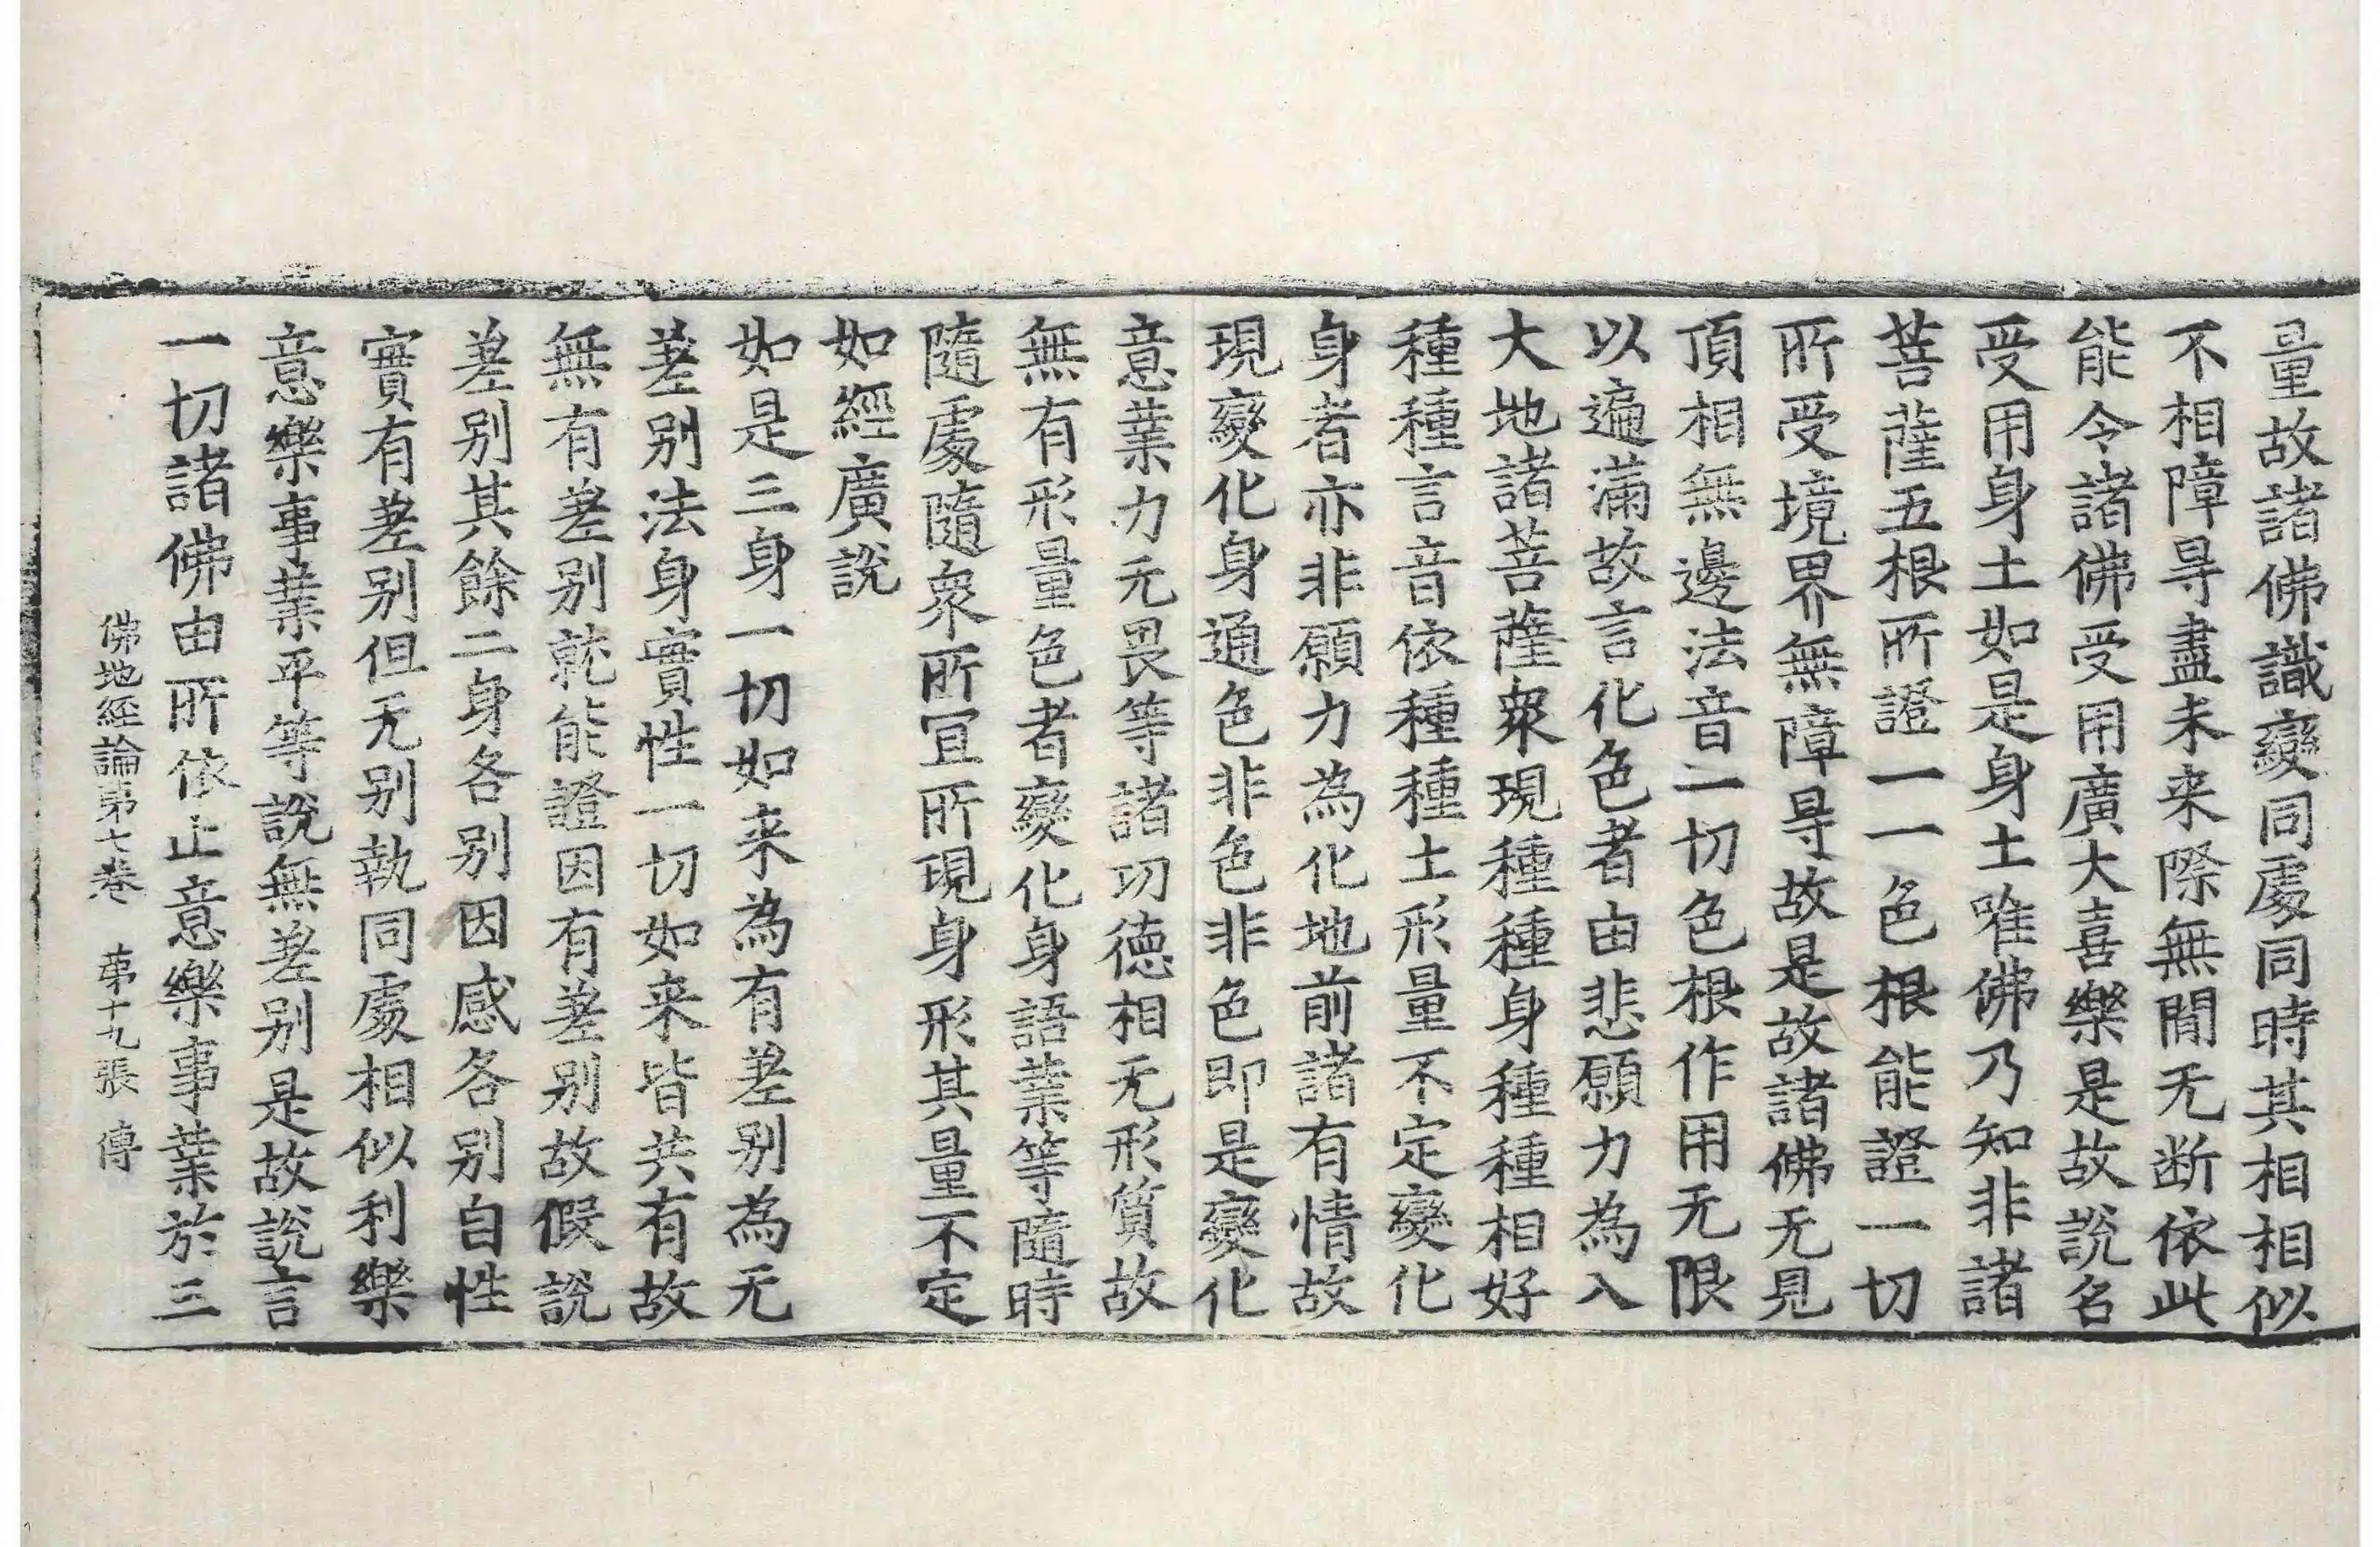 量故諸佛識變同處同時其相相似
不相障㝵盡未来際無間无断依此
能令諸佛受用廣大喜樂是故說名
受用身土如是身土唯佛乃知非諸
菩薩五根所證一一色根能證一切
所受境界無障㝵故是故諸佛无見
頂相無邊法音一切色根作用无限
以遍滿故言化色者由悲願力為入
大地諸菩薩衆現種種身種種相好
種種言音依種種土形量不定變化
身者亦非願力為化地前諸有情故
現變化身通色非色非色即是變化
意業力无畏等諸功德相无形質故
無有形量色者變化身語業等隨時
隨處隨衆所冝所現身形其量不定
如經廣說
如是三身一切如来為有差别為无
差别法身實性一切如来皆共有故
無有差别就能證因有差别故假說
差别其餘二身各别因感各别自性
實有差别但无别執同處相似利樂
意樂事業平等說無差别是故說言
一切諸佛由所依止意樂事業於三
佛地經論第七卷 第十九張 傳